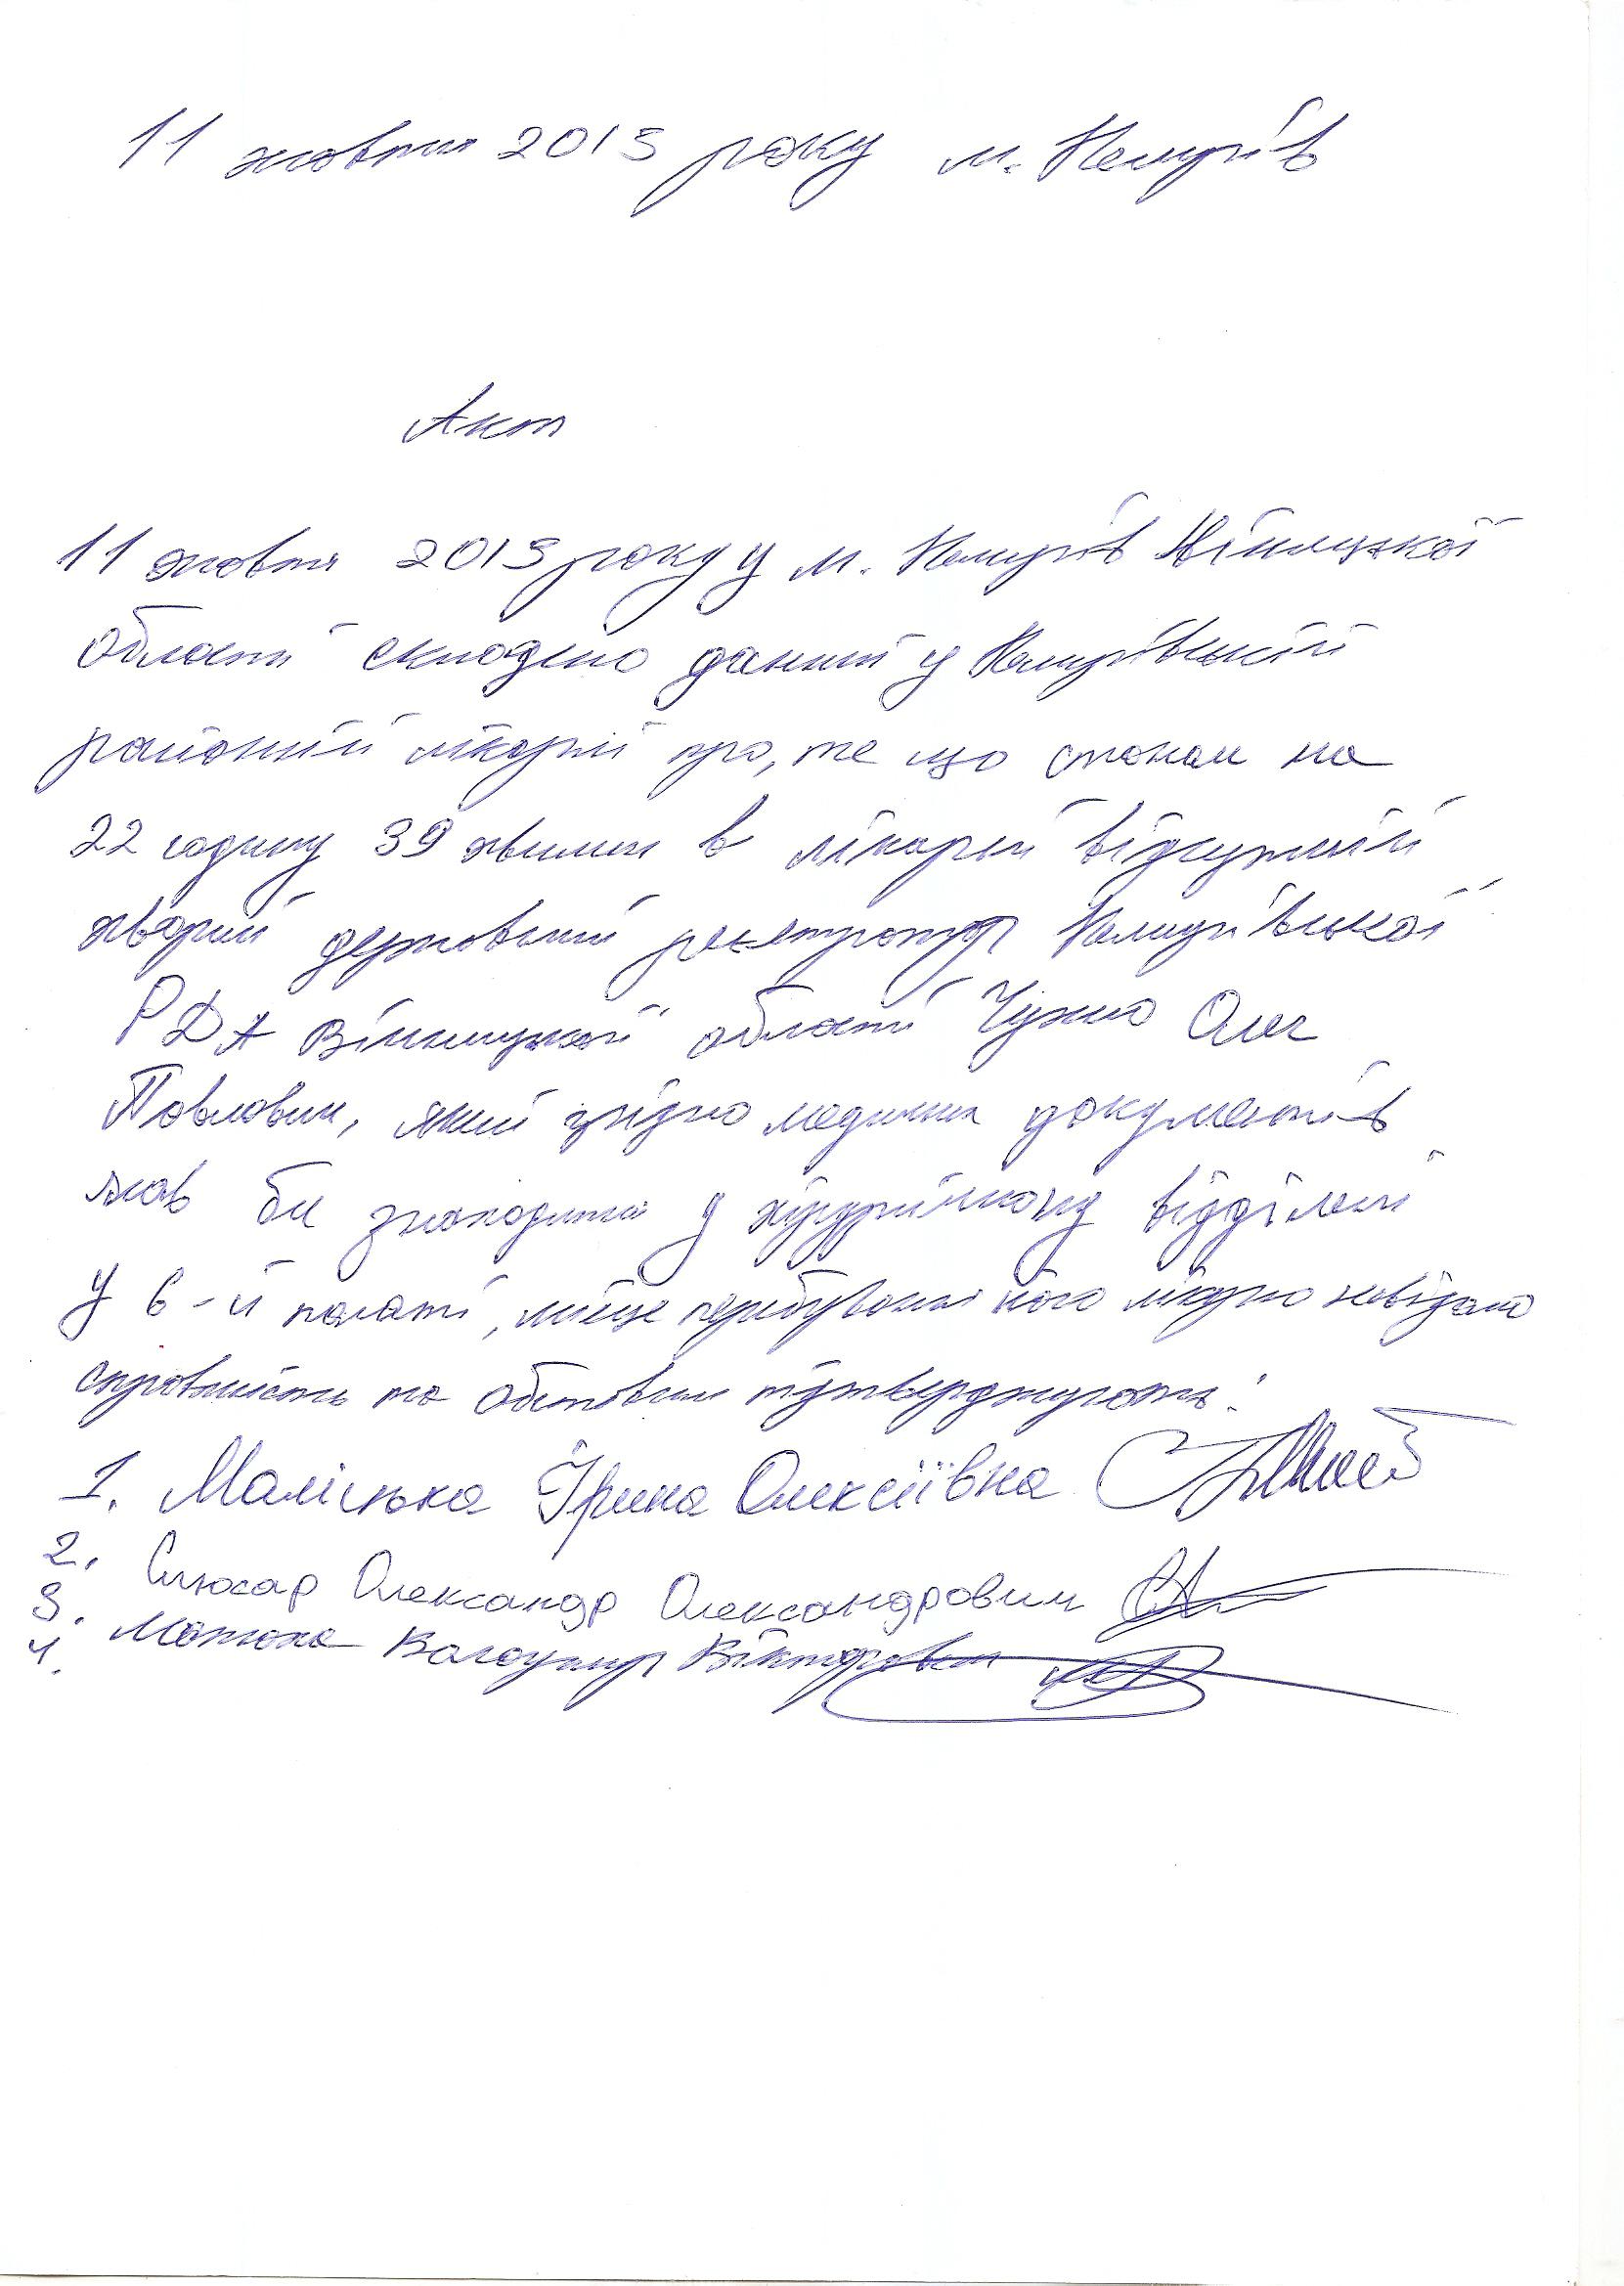 11 жовтня 2015 року м. Немирів
Акт
11 жовтня 2015 року у м. Немирів Вінницької
області складено даний у Немирівській
районній лікарні про, те що станом на
22 годину 39 хвилин в лікарні відсутній
хворий державний реєстратор Немирівської
РДА Вінницької області Олег
Павлович, який згідно медичних документів
мав би знаходитись у хірургічному відділені
у 6-й палаті, місце перебування його лікарю невідомо
справжність та обставини підтверджують:
1. Маліська Ірина Олексіївна
2. Слюсар Олександр Олександрович
3. Володимир Вікторович
4.